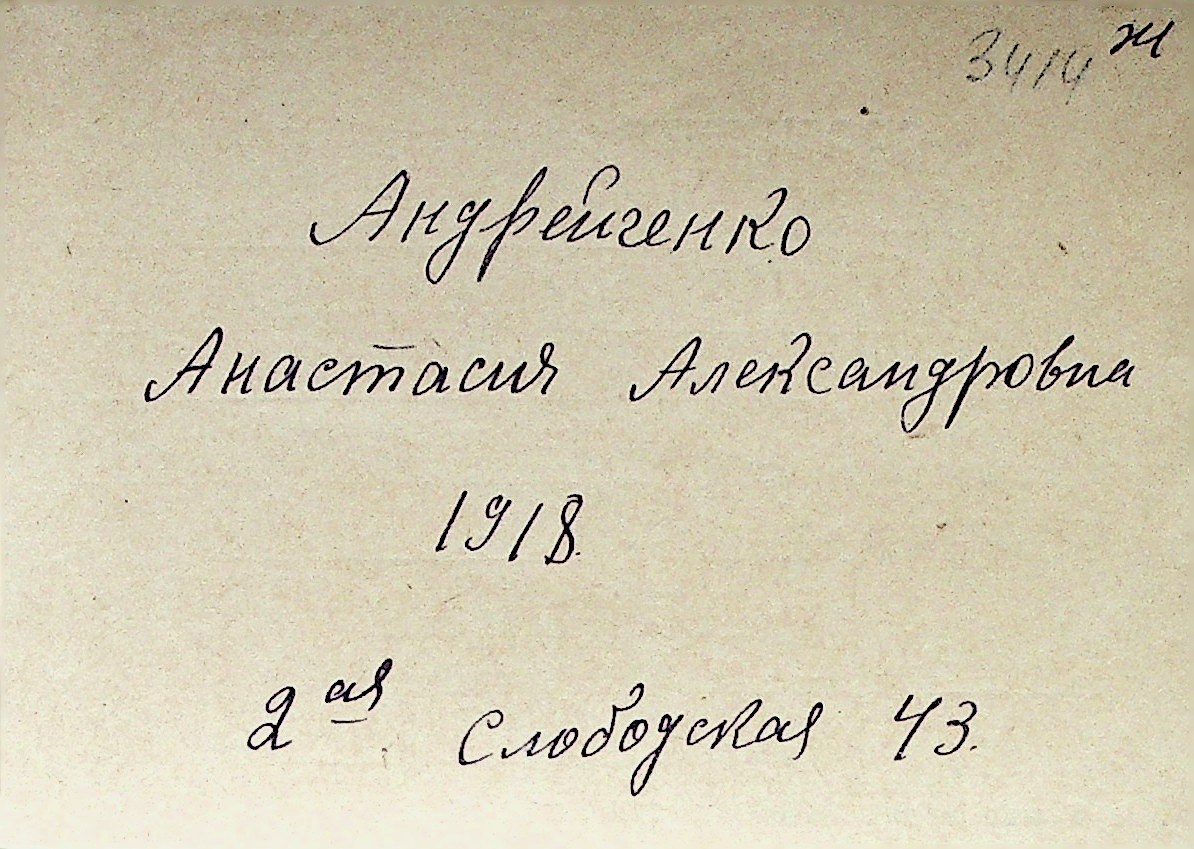 3414 Ж
Андрейченко
Анастасия Александровна
1918.
2ая Слободская 43.